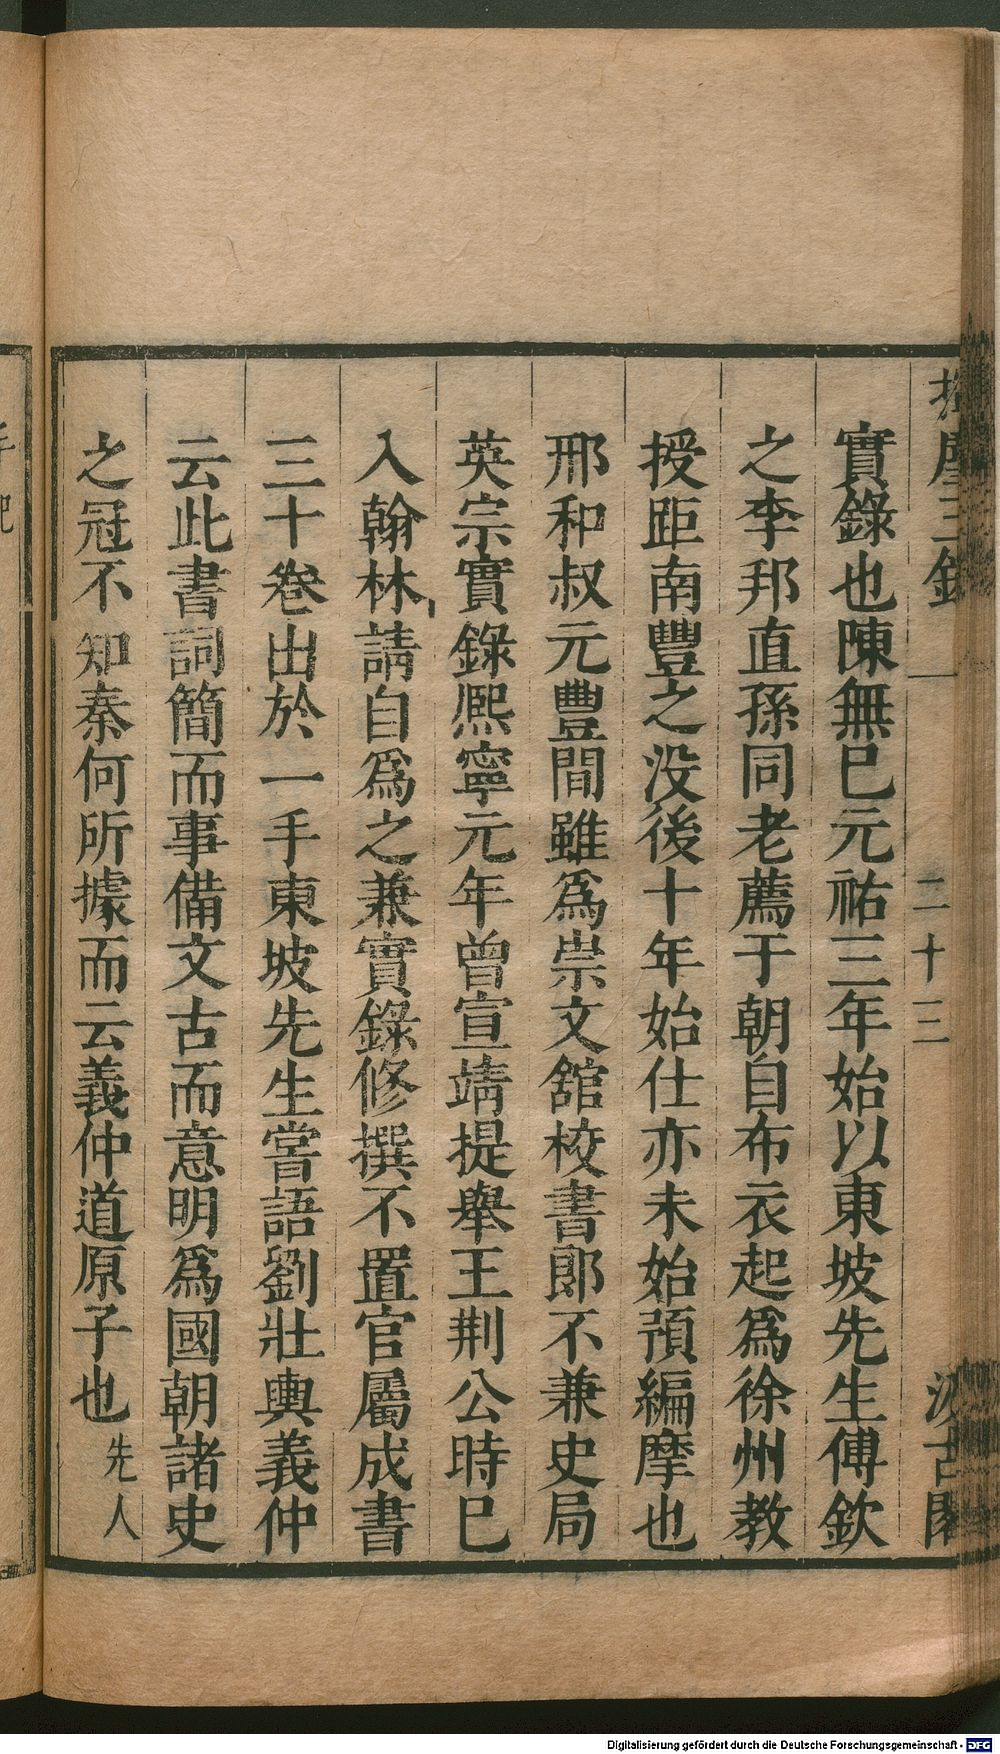 實錄也陳無巳元祐三年始以東坡先生傅欽
之李邦直孫同老薦于朝自布衣起爲徐州教
授距南豐之没後十年始仕亦未始預編摩也
邢和叔元豐間雖爲崇文舘校書郎不兼史局
英宗實錄熈寧元年曾宣靖提舉王荆公時巳
入翰林請自爲之兼實錄修撰不置官屬成書
三十卷出於一手東坡先生嘗語劉壯輿義仲
云此書詞簡而事備文古而意明爲國朝諸史
之冠不知秦何所據而云義仲道原子也先人
三錄
一
二十三
汲古閣
Digitalisierung gefördert durch die Deutsche Forschungsgemeinschaft - DFG